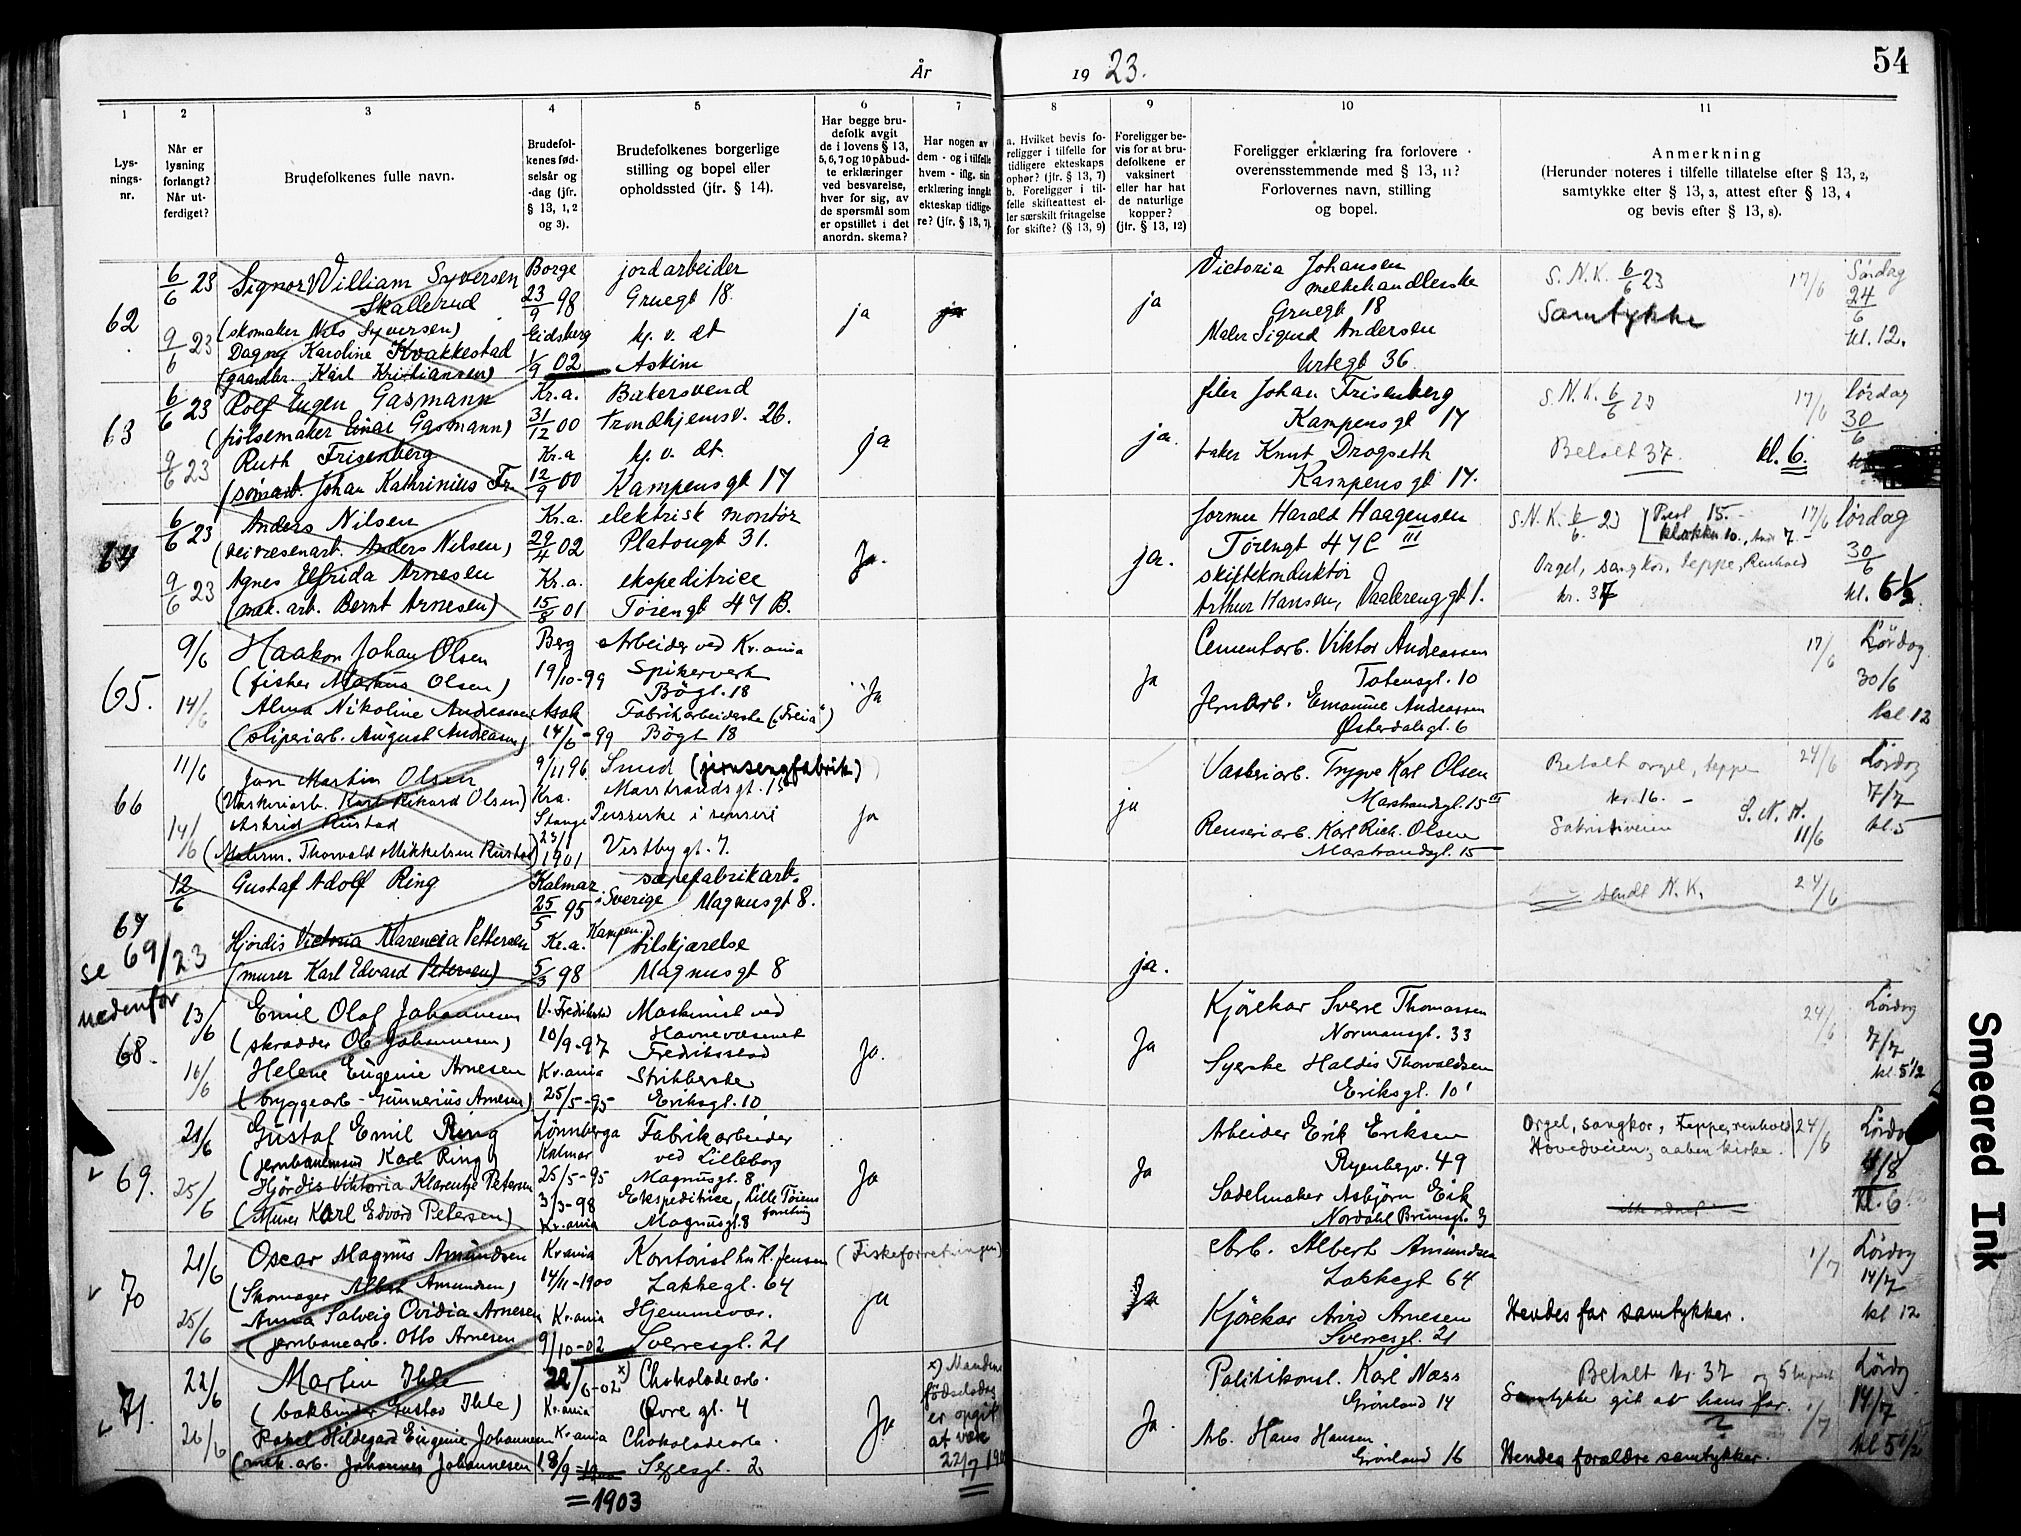 År 1923.
54
1
2
3
4
5
6
7
8
9
10
11
Lys-
nings-
nr.
Når er
lysning
forlangt?
Når ut-
ferdiget?
Brudefolkenes fulle navn.
Brudefol-
kenes fød-
selsår og
-dag (jfr.
§ 13, 1, 2
og 3).
Brudefolkenes borgerlige
stilling og bopel eller
opholdssted (jfr. § 14).
Har begge bru-
defolk avgit
de i lovens § 13,
5, 6, 7 og 10 påbud-
te erklæringer
ved besvarelse,
hver for sig, av
de spørsmål som
er opstillet i det
anordn. skema?
Har nogen av
dem - og i tilfelle
hvem - iflg. sin
erklæring inngått
ekteskap tidlige-
re? (jfr. § 13, 7).
a. Hvilket bevis fo-
religger i tilfelle for
tidligere ekteskaps
ophør? (jfr. § 13, 7)
b. Foreligger i til-
felle skifteattest el-
ler særskilt fritagelse
for skifte? (§ 13, 9)
Foreligger be-
vis for at bru-
defolkene er
vaksinert
eller har hat
de naturlige
kopper?
(jfr. § 13, 12)
Foreligger erklæring fra forlovere
overensstemmende med § 13, 11?
Forlovernes navn, stilling
og bopel.
Anmerkning
(Herunder noteres i tilfelle tillatelse efter § 13, 2,
samtykke efter § 13, 3, attest efter § 13, 4
og bevis efter § 13, 8).
62
6/6 23
9/6 23
Signor William Syversen
Skallerud
(skomaker Nils Syversen)
Dagny Karoline Kvakkestad
(gaardbr. Karl Kristiansen)
Borge
23/9 98
Eidsberg
1/9 02
jordarbeider
Gruegt 18.
hj. v. dt
Askim
ja
ja
ja
Victoria Johansen
melkehandlerske
Gruegt 18
Maler Sigurd Andersen
Urtegt 36
S.N.K. 6/6 23
Samtykke
17/6
Søndag
24/6
kl. 12.
63
6/6 23
9/6 23
Rolf Eugen Gasmann
(pølsemaker Einar Gasmann)
Ruth Frisenberg
(sømarb. Johan Kathrinius Fr.
Kr.a.
31/12 00
Kr.a
12/9 00
Bakersvend
Trondhjemsv. 26.
hj. v. dt.
Kampens gt 17
ja
ja.
filer Johan Frisenberg
Kampens gt 17
baker Knut Dragseth
Kampens gt 17.
S.N.K. 6/6 23
Betalt 37.
kl. 6.
17/6
lørdag
30/6
64
6/6 23
9/6 23
Anders Nilsen
(veivæsenarb. Anders Nilsen)
Agnes Elfrida Arnesen
(mek. arb. Bernt Arnesen)
Kr.a.
29/4 02
Kr.a.
15/8 01
elektrisk montør
Platougt 31.
ekspeditrice
Tøiengt 47 B.
Ja.
ja.
former Harald Haagensen
Tøiengt 47C III
skiftekonduktør
Arthur Hansen, Vaalerenggt 1.
S.N.K. 6/6 23
15.-
klokker 10.
Orgel, sangkor, teppe, Renhold
kr. 37
17/6
lørdag
30/6
kl. 6 1/2
65.
9/6
14/6
Haakon Johan Olsen
(fisker Markus Olsen)
Alma Nikoline Andreassen
(sliperiarb. August Andreassen)
Berg
19/10-99
Asak
14/6-99
Arbeider ved Kr.ania
Spikerverk
Bøgt. 18
Fabrikarbeiderske ("Freia")
Bøgt 18
Ja
Ja
Cementarb. Viktor Andreassen
Totensgt. 10
Jernarb. Emanuel Andreassen
Østerdalsgt. 6
17/6
Lørdag
30/6
kl. 12
66
11/6
14/6
Jan Martin Olsen
(Vaskeriarb. Karl Rikard Olsen)
Astrid Rustad
(Malerm. Thorvald Mikkelsen Rustad)
9/11 96
Kra.
Stange
23/1
1901
Smed (jernsengfabrik)
Marstrandsgt. 15
Presserske i renseri
Vestbygt. 7.
Ja
ja
Vaskeriarb. Trygve Karl Olsen
Marstrandsgt. 15 III
Renseriarb. Karl Rich. Olsen
Marstrandsgt. 15
Betalt orgel, teppe
kr. 16.-
Sakristiveien
S.N.K.
11/6
24/6
Lørdag
7/7
kl. 5
67
se 69/23
nedenfor
12/6
Gustaf Adolf Ring
Hjørdis Victoria Klarencia Pettersen
(murer Karl Edvard Petersen)
Kalmar
i Sverige
25/5 95
Kr.a.
5/3 98
sæpefabrikarb.
Magnusgt 8.
Kampen.
Magnusgt 8
ja.
sendt N.K.
24/6
68.
13/6
16/6
Emil Olaf Johannesen
(skrædder Ole Johannesen)
Helene Eugenie Arnesen
(bryggearb - Gunnerius Arnesen)
V. Fredrikstad
10/9-97
Kr.ania
25/5-95
Maskinist ved
Havnevæsenet
Fredriksstad
Strikkerske
Eriksgt. 10
Ja.
Ja
Kjørekar Sverre Thomassen
Normannsgt. 33
Syerske Haldis Thorvaldsen
Eriksgt. 10
24/6
Lørdag
7/7
kl. 5 1/2
69.
21/6
25/6
Gustaf Emil Ring
(jernbanemand Karl Ring)
Hjördis Viktoria Klarentze Petersen
(Murer Karl Edvard Petersen)
Lønneberga
Kalmar
25/5-95
3/3-98
Kr.ania
Fabrikarbeider
ved Lilleborg
Magnusgt. 8
Ekspeditrice, Lille Tøiens
forretning
Magnusgt. 8
Ja
Ja
Arbeider Erik Eriksen
Ryenbergv. 49
Sadelmaker Asbjørn Eik
Nordahl Brunsgt. 3
Orgel, sangkor, Teppe, renhold
Hovedveien, aaben kirke.
24/6
Lørdag
4/8
kl. 6
70
21/6
25/6
Oscar Magnus Amundsen
(Skomager Albert Amundsen)
Anna Solveig Ovidia Arnesen
(jernbanearb. Otto Arnesen
Kr.ania
14/11-1900
Kr.ania
9/10-02
Kontorist hos H. Jensen (Fiskeforretningen)
Lakkegt. 64
Hjemmevær.
Sverresgt. 21
ja
Ja
Arb. Albert Amundsen
Lakkegt 64
Kjørekar Arvid Arnesen
Sverresgt. 21
Hendes far samtykker.
1/7
Lördag
14/7
kl 12
71.
22/6
26/6
Martin Ihle
(bokbinder Gustav Ihle)
Rakel Hildegard Eugenie Johannesen
(mek. arb. Johannes Johannesen
22/6-02 x)
Kr.ania
Kr.ania
18/9-1900
=1903
Chokoladearb.
Øvre gt. 4
Chokoladearb.
Sexesgt. 2
Ja
x) Mandens
fødselsdag
er opgit
at være
22/7 190
Ja.
Politikonst. Karl Næss
Grønland 14
Arb. Hans Hansen
Grønland 16
Betalt kr. 37 og 5
Samtykke git at hans far.
Hendes forældre samtykker.
1/7
Lørdag
14/7
kl 5 1/2
Smeared Ink